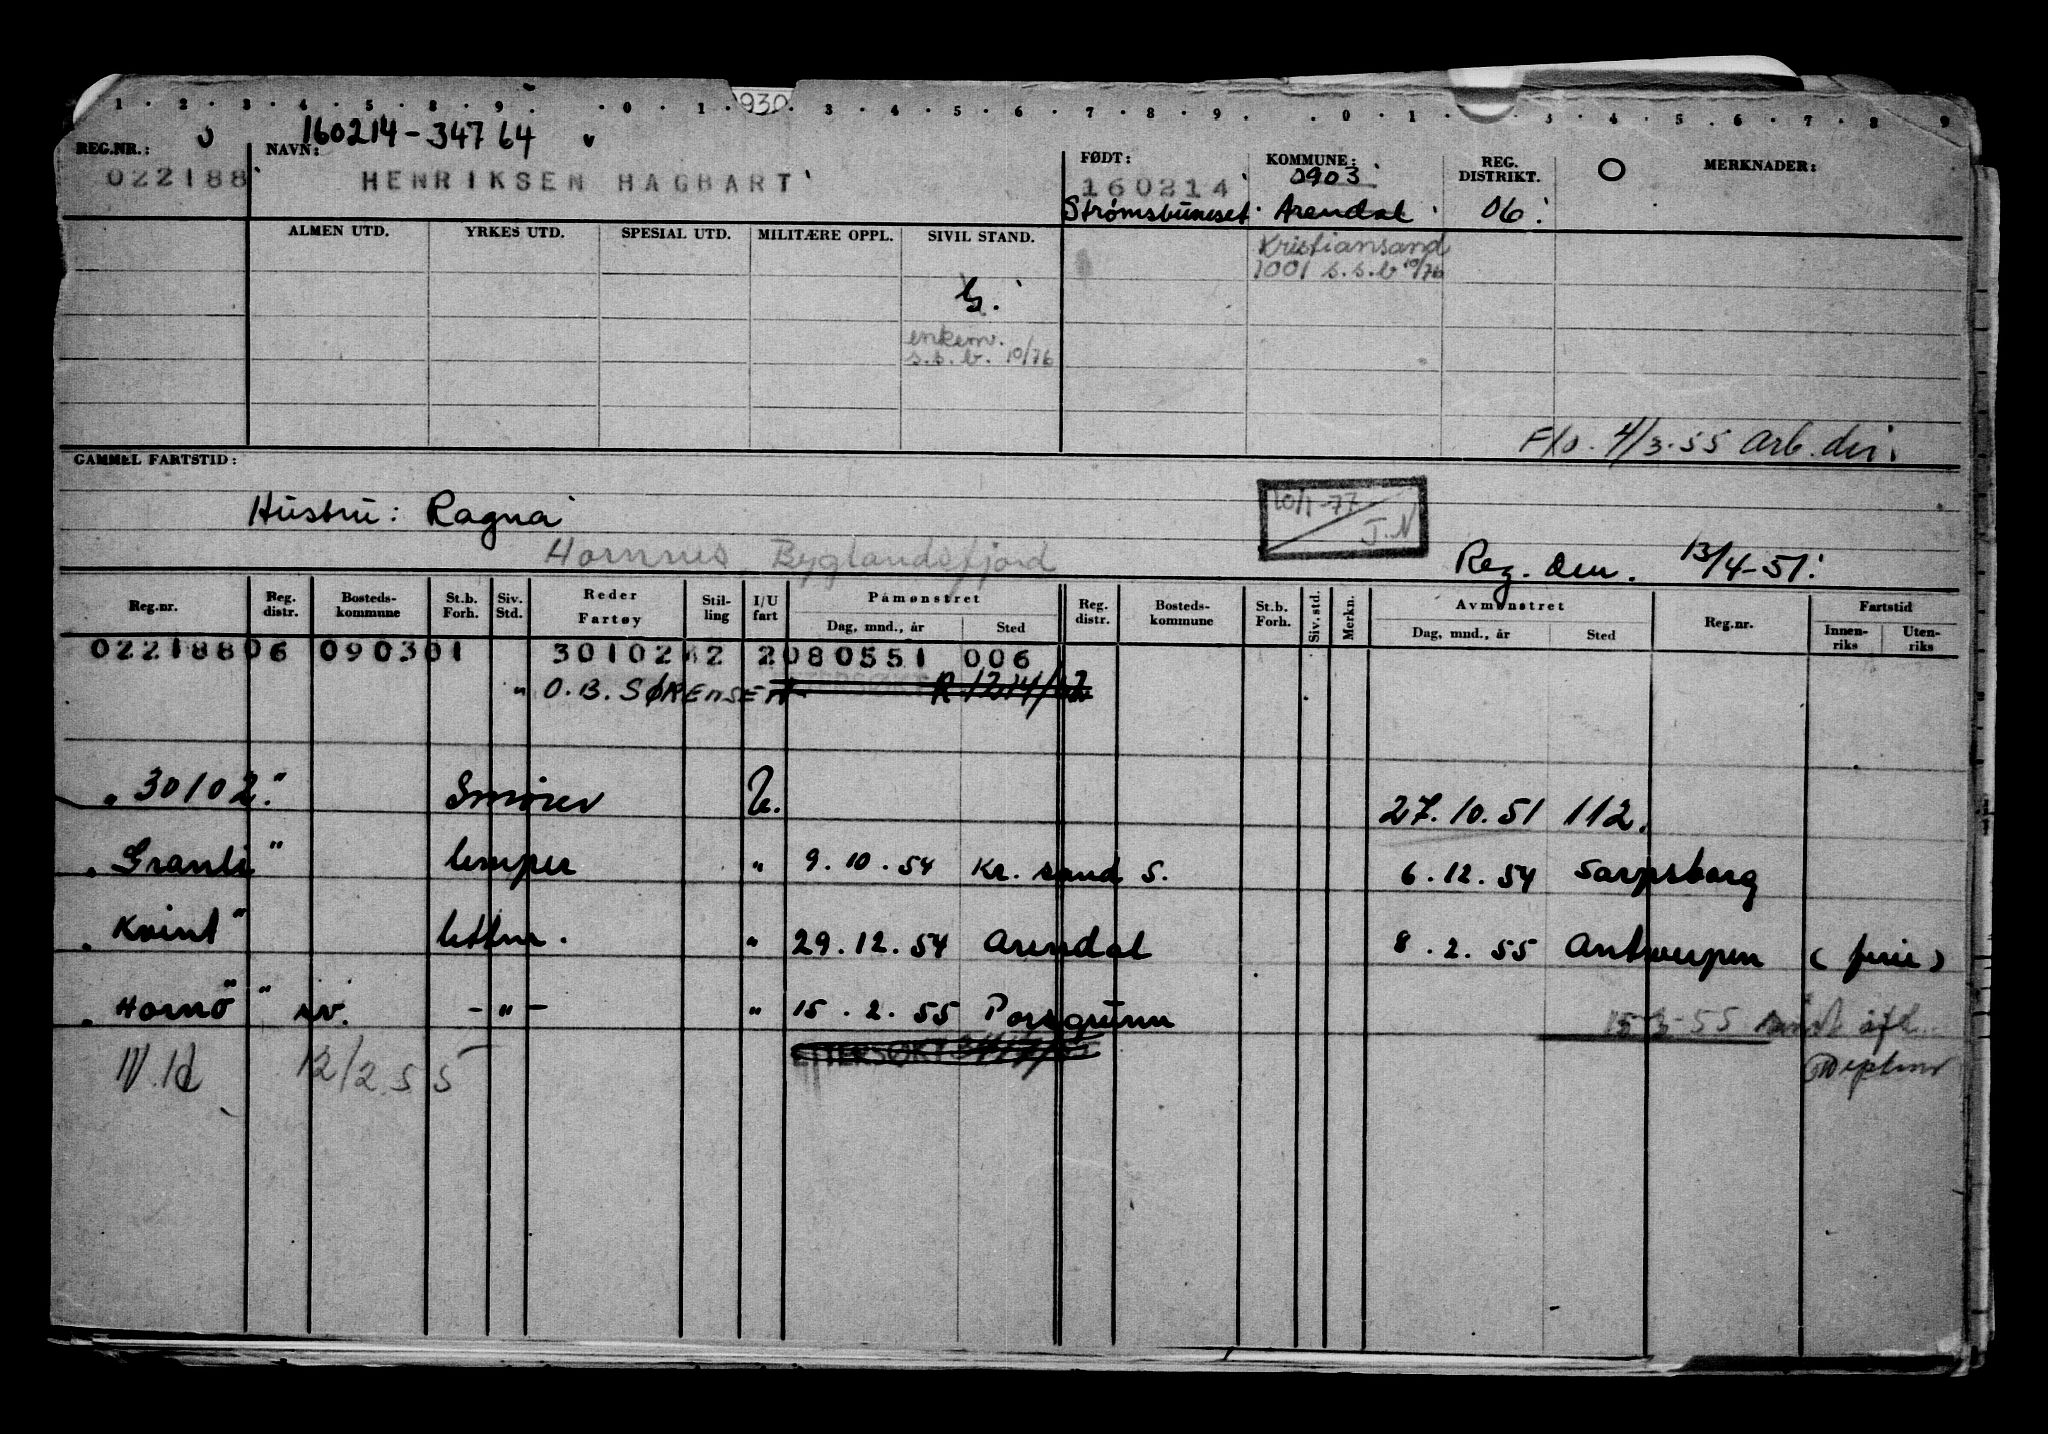 1 . 2 . 3 . 4 . 5 . 8 . 9 . . 0 . 1 . 930 . 3 . 4 . 5 . 6 . 7 . 8 . 9 . . 0 . 1 . . 3 . 4 . 5 . 6 . 7 . 8 9
160214-34764
REG.NR.: NAVN: FØDT: KOMMUNE: REG. DISTRIKT. MERKNADER:
022188 HENRIKSEN HAGBART 160214 0903
Strømsbuneset Arendal 06
ALMEN UTD. YRKES UTD. SPESIAL UTD. MILITÆRE OPPL. SIVIL STAND.
Kristiansand
1001 s.s.b 10/76
G.
enkem.
s.s.b. 10/76
F/o. 4/3-55 Arb. dir.
GAMMEL FARTSTID:
10/1-77
J.N
Hustru: Ragna
Hornnes, Byglandsfjord
Reg. den. 13/4-51.
Reg.nr. Reg. distr. Bosteds-kommune St.b. Forh. Siv. Std. Reder Fartøy Stil-ling I/U fart Påmønstret Dag, mnd., år Sted Reg. distr. Bosteds-kommune St.b. Forh. Siv. std. Merkn. Avmønstret Dag, mnd., år Sted Reg.nr. Fartstid Innen-riks Uten-riks
02218806 090301 30102 2 2080551 006
" O. B. SØRENSEN"
"30102" Smører U. 27.10.51 112.
"Granli" lemper " 9.10.54 Kr. sand S. 6.12.54 Sarpsborg
"Kvint" lettm. " 29.12.54 Arendal 8.2.55 Antwerpen (ferie)
"Hornö" -"- " 15.2.55 Porsgrunn 15-3-55
ETTERSØKT
12/2.55